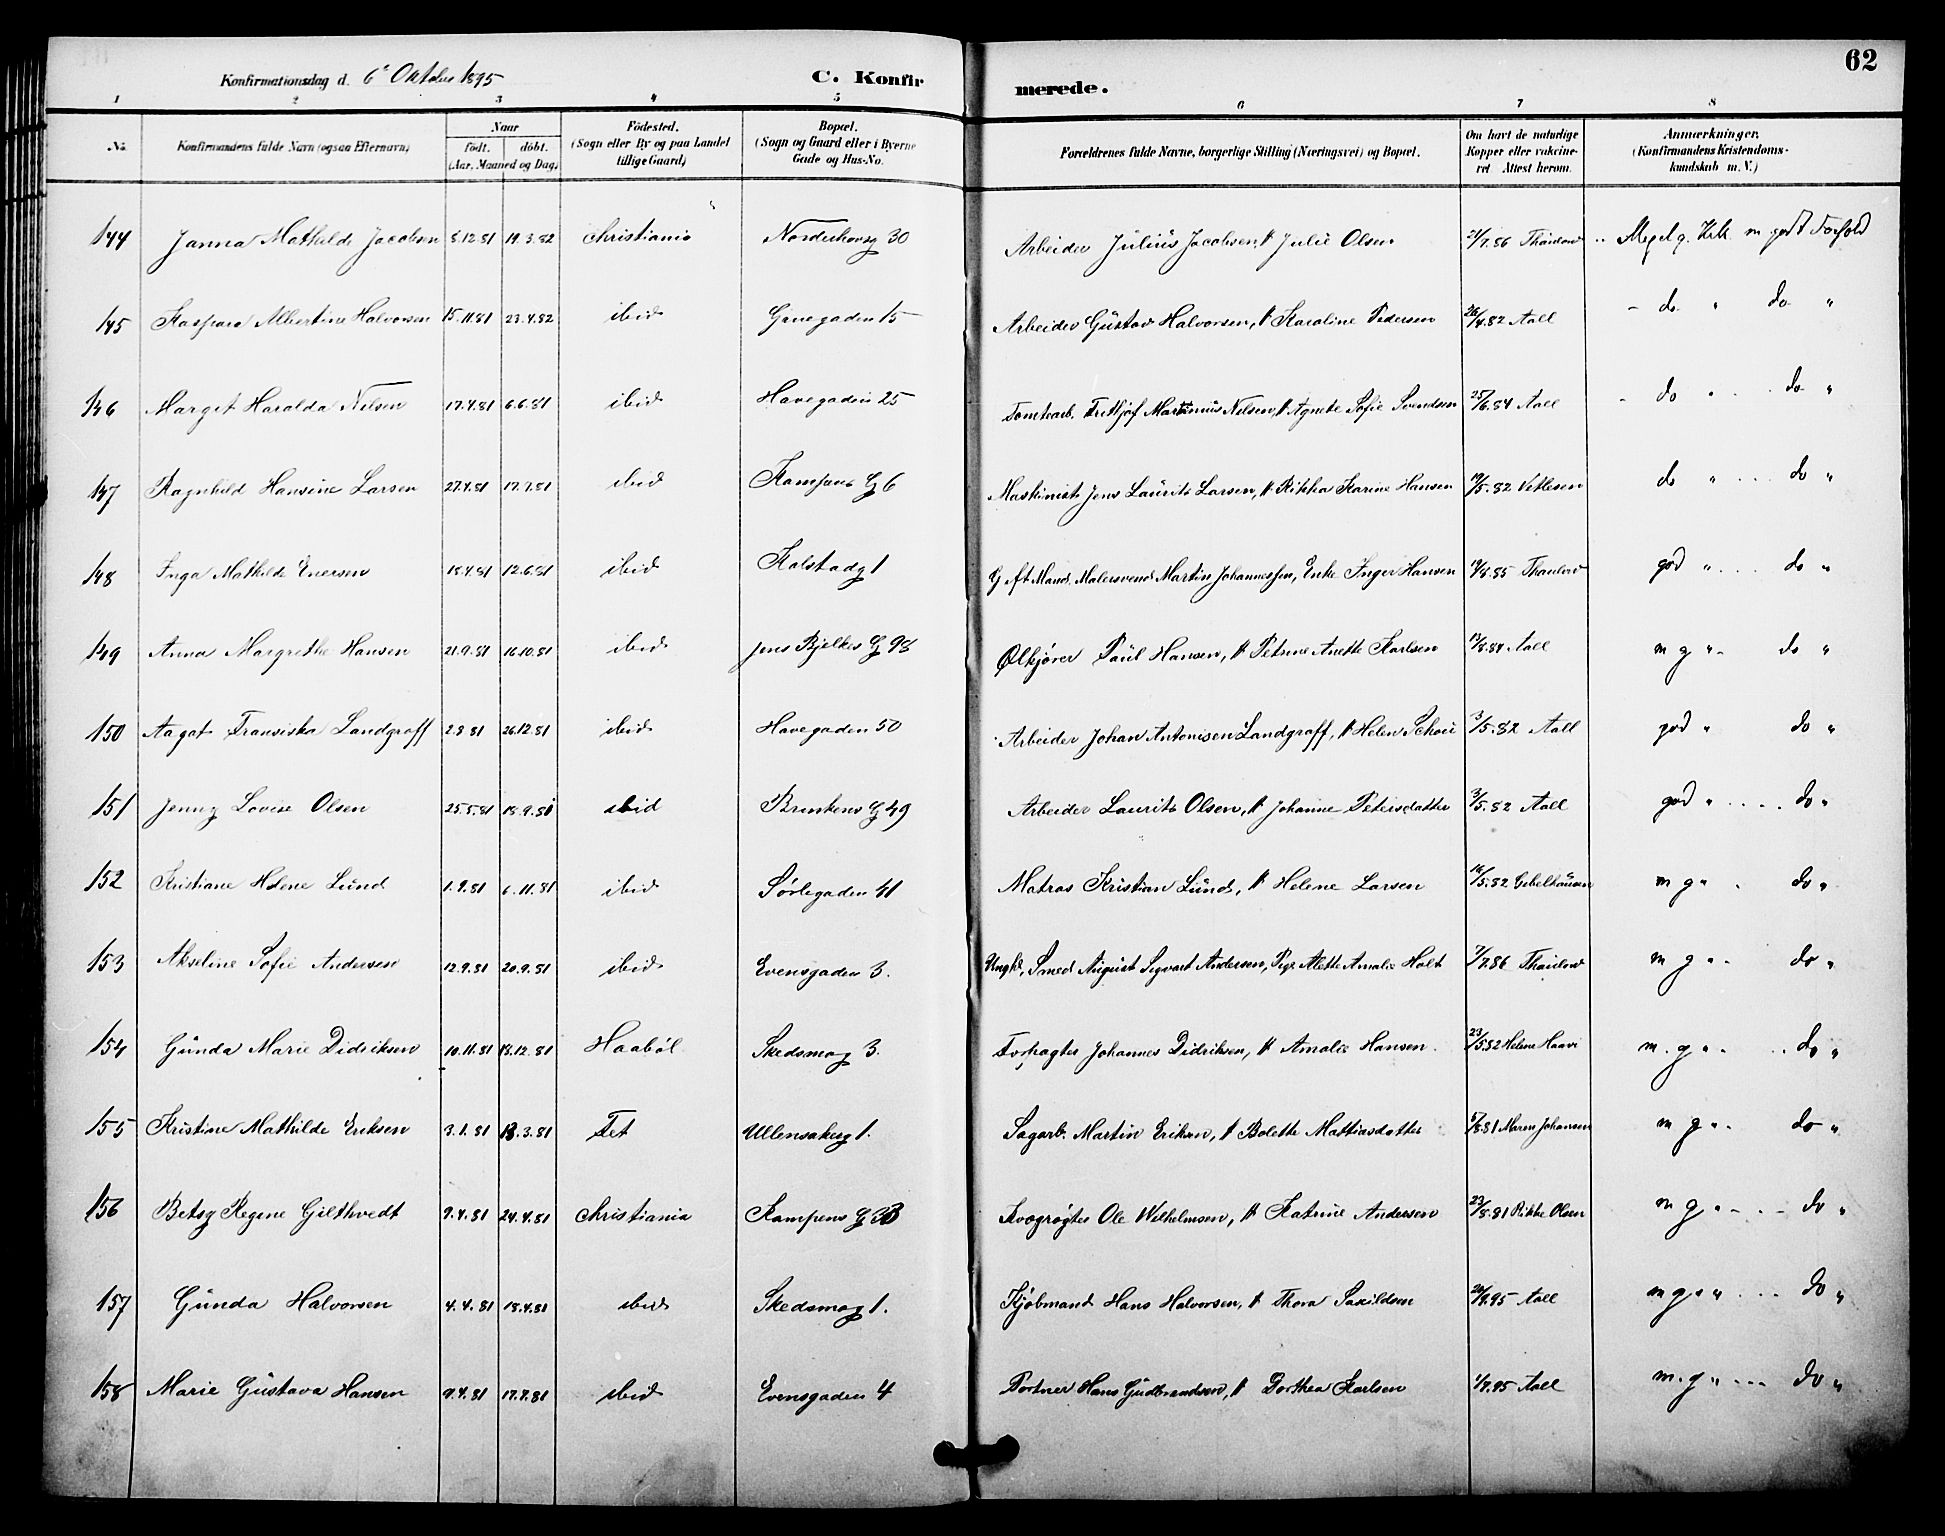 62
Konfirmationsdag d. 6te Oktober 1895 C. Konfirmerede.
1 2 3 4 5 6 7 8
No. Konfirmandens fulde Navn (ogsaa Efternavn) Naar födt. döbt. (Aar, Maaned og Dag) Födested. (Sogn eller By og paa Landet tillige Gaard) Bopæl. (Sogn og Gaard eller i Byerne Gade og Hus-No. Forældrenes fulde Navne, borgerlige Stilling (Næringsvei) og Bopæl. Om havt de naturlige Kopper eller vakcineret Attest herom. Anmærkninger. (Konfirmandens Kristendomskundskab m. V.)
144 Janna Mathilde Jacobsen 5.12.81 19.3.82 Christiania Norderhovsg 30 Arbeider Julius Jacobsen, & Julie Olsen 21/7.86 Thaulow Meget g. Krk. m godt Forhold
145 Kaspara Albertine Halvorsen 15.11.81 23.4.82 ibid Grnegaden 15 Arbeider Gustav Halvorsen, & Karoline Pedersen 26/4.82 Aall - do " do "
146 Margit Haralda Nilsen 17.4.81 6.6.81 ibid Havegaden 25 Tomtearb. Frithjof Martinius Nilsen, & Agnete Sofie Svendsen 25/6.84 Aall - do " do "
147 Ragnhild Hansine Larsen 27.4.81 17.7.81 ibid Kampens G 6 Maskinist Jens Laurits Larsen, & Rikka Karine Hansen 19/5.82 Vetlesen do " do "
148 Inga Mathilde Enersen 18.4.81 12.6.81 ibid Kalstadg 1 G ift Mand. Malersvend Martin Johannessen, Enke Inger Hansen 19/8.85 Thaulow god " do "
149 Anna Margrethe Hansen 21.9.81 16.10.81 ibid Jens Bjelkes G 98 Ølkjører Paul Hansen, & Petrine Anette Karlsen 13/8.84 Aall m g " do "
150 Aagot Fransiska Landgraff 2.8.81 26.12.81 ibid Havegaden 50 Arbeider Johan Antonisen Landgraff, & Helen Schou 3/5.82 Aall god " do "
151 Jenny Lovise Olsen 25.5.81 18.9.81 ibid Brinkens G 49 Arbeider Laurits Olsen, & Johanne Petersdatter 3/5.82 Aall god " do "
152 Kristiane Helene Lund 1.9.81 6.11.81 ibid Sørligaden 41 Matros Kristian Lund, & Helene Larsen 16/5.82 Gebelhausen m g " do "
153 Akseline Sofie Andersen 12.9.81 20.9.81 ibid Evensgaden 3. Ungk., Smed August Sigvart Andersen, Pige Alette Amalie Holt 7/7.86 Thaulow m g " do "
154 Gunda Marie Didriksen 10.11.81 18.12.81 Haaböl Skedsmog 3. Forpagter Johannes Didriksen, & Amalie Hansen. 23/5.82 Helene Haavi m. g " do "
155 Kristine Mathilde Eriksen 3.1.81 13.3.81 Fet Ullensakerg 1. Sagarb. Martin Eriksen, & Bolette Mattiasdatter 5/8.81 Maren Johansen m g " do "
156 Betsy Regine Gilthvedt 9.4.81 24.4.81 Christiania Kampens G 33 Kvægrøgter Ole Wilhelmsen, & Katrine Andersen 23/8.81 Rikke Olsen m g " do "
157 Gunda Halvorsen 4.4.81 18.4.81 ibid Skedsmog 1. Kjöbmand Hans Halvorsen, & Thora Saxildsen 26/9.95 Aall m g " do "
158 Marie Gustava Hansen 9.4.81 17.7.81 ibid Evensgaden 4 Portner Hans Gudbrandsen, & Dorthea Karlsen 1/7.95 Aall m. g " do "